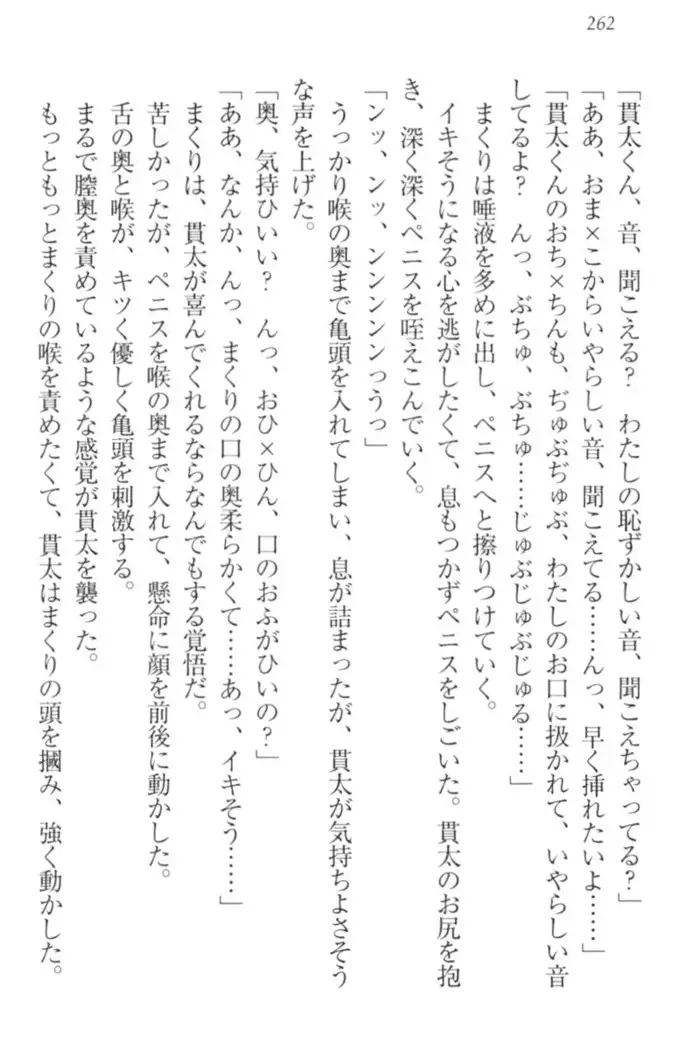 262
「貫太くん、音、聞こえる?　わたしの恥ずかしい音、聞こえちゃってる?」
「ああ、おま×こからいやらしい音、聞こえてる……んっ、早く挿れたいよ……」
「貫太くんのおち×ちんも、ぢゅぶぢゅぶ、わたしのお口に扱かれて、いやらしい音
してるよ?　んっ、ぶちゅ、ぶちゅ……じゅぶじゅぶじゅる……」
まくりは唾液を多めに出し、ペニスへと擦りつけていく。
イキそうになる心を逃がしたくて、息もつかずペニスをしごいた。貫太のお尻を抱
き、深く深くペニスを咥えこんでいく。
「ンッ、ンッ、ンンンンンっうっ」
うっかり喉の奥まで亀頭を入れてしまい、息が詰まったが、貫太が気持ちよさそう
な声を上げた。
「奥、気持ひいい?　んっ、おひ×ひん、口のおふがひいの?」
「ああ、なんか、んっ、まくりの口の奥柔らかくて……あっ、イキそう……」
まくりは、貫太が喜んでくれるならなんでもする覚悟だ。
苦しかったが、ペニスを喉の奥まで入れて、懸命に顔を前後に動かした。
舌の奥と喉が、キツく優しく亀頭を刺激する。
まるで膣奥を責めているような感覚が貫太を襲った。
もっともっとまくりの喉を責めたくて、貫太はまくりの頭を摑み、強く動かした。